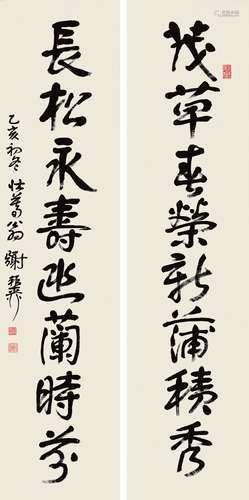 茂草春榮新蒲積秀
長松永壽幽蘭時芬
乙亥初冬壯暮翁謝稚柳